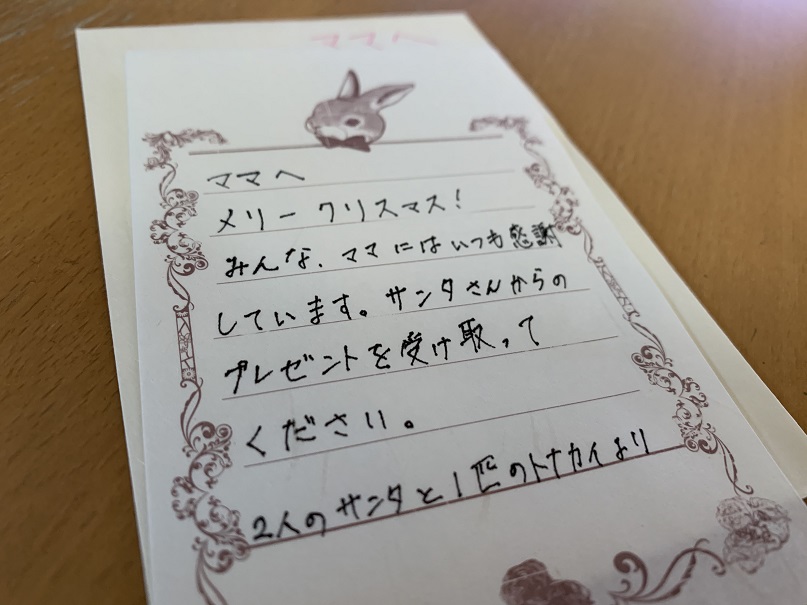 ママへ
ママへ
メリークリスマス!
みんな、ママにはいつも感謝
しています。サンタさんからの
プレゼントを受け取って
ください。
2人のサンタと1匹のトナカイより